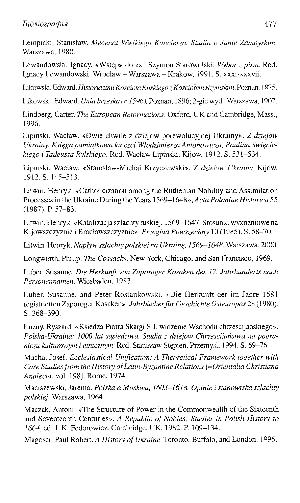 Бібліографія 477
Łempicki, Stanisław. Mecenat Wielkiego Kanclerza. Studia o Janie Zamoyskim.
Warszawa, 1980.
Lewandowski, Ignacy. «Wstęp» do
Szymon Starowolski. Wybór z pism. Red.
Ignacy Lewandowski. Wrocław – Warszawa – Kraków, 1991. S.
Likowski, Edward. Historia
Poznań, 1875.
Likowski, Edward. Unia brzeska (r. 1596). Poznań, 1896; 2-gie wyd. Warszawa, 1907.
Lindberg, Carter. The European Reformations. Oxford, UK and Cambridge, Mass.,
1996.
Lipiński, Wacław. «Dwie chwile z dziejów porewolucyjnej Ukrainy». Z dziejów
Ukrainy. Księga pamiątkowa ku czci Włodzimierza Antonowicza, Paulina Święcic-
kiego i Tadeusza Rylskiego. Red. Wacław Lipiński. Kijów, 1912. S. 514–634.
Lipiński, Wacław. «Stanisław-Michał Krzyczewski». Z dziejów Ukrainy. Kijów,
1912. S. 145–513.
Litwin, Henryk. «Catholicization among the Ruthenian Nobility and Assimilation
Processes in the Ukraine During the Years 1569–1648». Acta Poloniae Historica 55
(1987). P. 57–83.
Litwin, Henryk. «Katolicyzacja szlachty ruskiej, 1569–1647. Stosunki wyznaniowe na
Kijowszczyźnie i Bracławszczyźnie». Przegląd Powszechny 10 (1985). S. 58–70.
Litwin, Henryk. Napływ szlachty polskiej na Ukrainę, 1569–1648. Warszawa, 2000.
Longworth, Philip. The Cossacks. New York, Chicago, and San Francisco, 1969.
Luber, Susanne. Die Herkunft von Zaporoger Kosaken des 17. Jahrhunderts nach
Personennamen. Wiesbaden, 1983.
Luber, Susanne, and Peter Rostankowski. «Die Herkunft der im Jahre 1581
registrierten Zaporoger Kosaken». Jahrbücher für Geschichte Osteuropas 28 (1980).
S. 368–390.
Łużny, Ryszard. «Księdza Piotra Skargi SJ. widzenie Wschodu chrześcijańskiego».
Polska–Ukraina: 1000 lat sąsiedztwa. Studia z dziejów Chrześcijaństwa na pogra-
niczu kulturowym i etnicznym. Red. Stanisław Stępień. Przemyśl, 1994. S. 69–76.
Macha, Josef. Ecclesiastical Unification: A Theoretical Framework together with
Case Studies from the History of Latin-Byzantine Relations [=Orientalia Christiana
Analecta. Vol. 198]. Rome, 1974.
Maciszewski, Jarema. Polska a Moskwa, 1603–1618. Opinie i stanowiska szlachty
polskiej. Warszawa, 1968.
Mączak, Antoni. «The Structure of Power in the Commonwealth of the Sixteenth
and Seventeenth Centuries». A Republic of Nobles: Studies in Polish History to
1864, ed. J. K. Fedorowicz. Cambridge, UK, 1982. P. 109–134.
Magocsi, Paul Robert. A History of Ukraine. Toronto, Buffalo, and London, 1996.